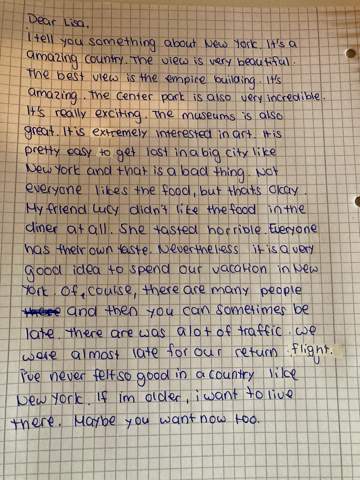 Dear Lisa,
I tell you something about New York. It's a
amazing country. The view is very beautiful.
The best view is the empire building. It's
amazing. The center park is also very incredible.
It's really exciting. The museums is also
great. It is extremely interested in art. It is
pretty easy to get lost in a big city like
New York and that is a bad thing. Not
everyone likes the food, but thats okay.
My friend Lucy didn't like the food in the
diner at all. She tasted horrible. Everyone
has their own taste. Nevertheless it is a very
good idea to spend our vacation in New
York. Of, course, there are many people
there and then you can sometimes be
late. There are was a lot of traffic. We
were almost late for our return flight.
I've never felt so good in a country like
New York. If Im older, i want to live
there. Maybe you want now too.